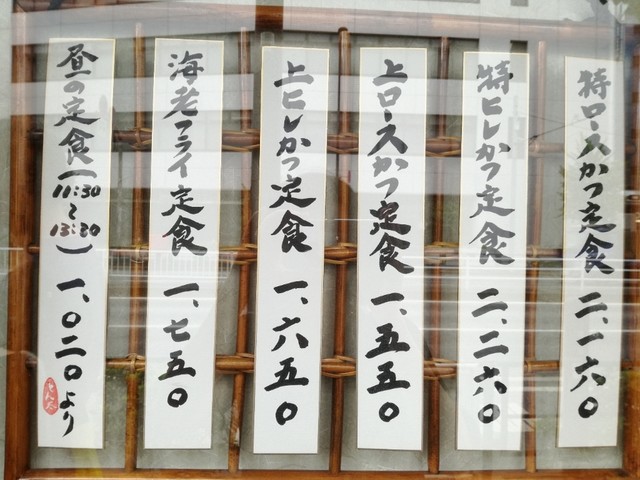 特ロースかつ定食 二、一六〇
特ヒレかつ定食 二、二六〇
上ロースかつ定食 一、五五〇
上ヒレかつ定食 一、六五〇
海老フライ定食 一、七五〇
昼の定食(11:30～13:30) 一、〇二〇より